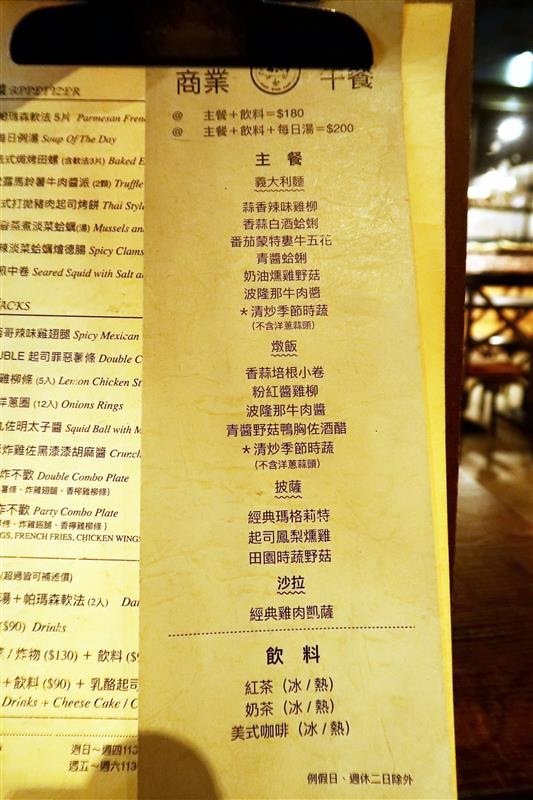 商業 午餐
@ 主餐+飲料=$180
@ 主餐+飲料+每日湯=$200
主 餐
義大利麵
蒜香辣味雞柳
香蒜白酒蛤蜊
番茄蒙特婁牛五花
青醬蛤蜊
奶油燻雞野菇
波隆那牛肉醬
*清炒季節時蔬
(不含洋蔥蒜頭)
燉飯
香蒜培根小卷
粉紅醬雞柳
波隆那牛肉醬
青醬野菇鴨胸佐酒醋
*清炒季節時蔬
(不含洋蔥蒜頭)
披薩
經典瑪格莉特
起司鳳梨燻雞
田園時蔬野菇
沙拉
經典雞肉凱薩
飲 料
紅茶(冰/熱)
奶茶(冰/熱)
美式咖啡(冰/熱)
例假日、週休二日除外
APPETIZER
帕瑪森軟法 5片 Parmesan Fren
每日例湯 Soup Of The Day
法式焗烤田螺 (含軟法3片) Baked E
露馬鈴薯牛肉醬派 (2顆) Truffle
式打拋豬肉起司烤餅 Thai Style
蒸煮淡菜蛤蠣(湯) Mussels an
辣淡菜蛤蠣燴德腸 Spicy Clams
煎中卷 Seared Squid with Salt a
ACKS
哥辣味雞翅腿 Spicy Mexican
UBLE 起司罪惡薯條 Double C
雞柳條 (5入) Lemon Chicken St
洋蔥圈 (12入) Onions Rings
佐明太子醬 Squid Ball with M
炸雞佐黑漆漆胡麻醬 Crunch
炸不歡 Double Combo Plate
薯條、炸雞翅腿、香檸雞柳條)
炸不歡 Party Combo Plate
條、炸雞翅腿、香檸雞柳條)
GS, FRENCH FRIES, CHICKEN WING
(超過皆可補述價)
湯+帕瑪森軟法(2入) Da
($90) Drinks
/ 炸物 ($130) + 飲料 ($9
+飲料 ($90) + 乳酪起司
Drinks + Cheese Cake / C
週日~週四113
週五~週六113